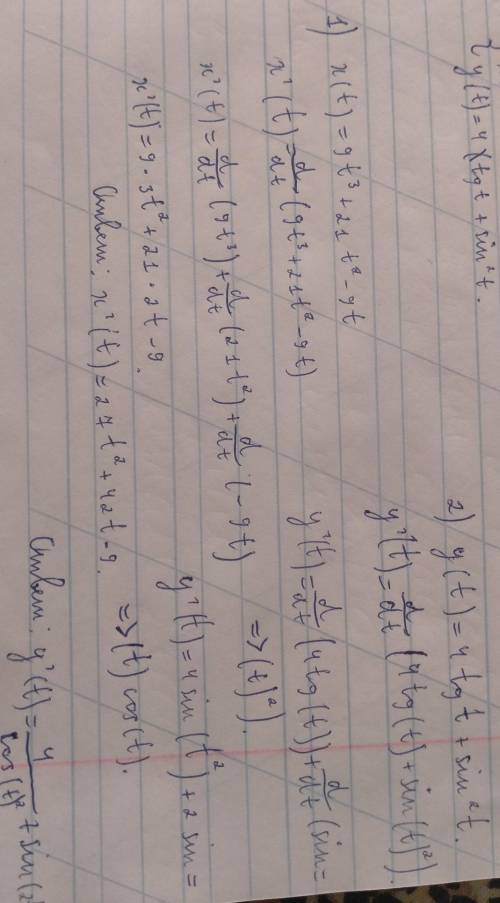 { y(t)=4 tgt + sin²t.
1) x(t)=9t³+21t²-9t
x'(t)=d/dt(9t³+21t²-9t)
x'(t)=d/dt(9t³)+d/dt(21t²)+d/dt(-9t)
x'(t)=9·3t²+21·2t-9.
Ответ: x'(t)=27t²+42t-9.
2) y(t)=4tgt+sin²t.
y'(t)=d/dt(4tg(t)+sin(t)²).
y'(t)=d/dt(4tg(t))+d/dt(sin=
=>(t)²).
y'(t)=4sin(t²)+2sin=
=>(t)cos(t).
Ответ: y'(t)=4/cos(t)²+sin(2